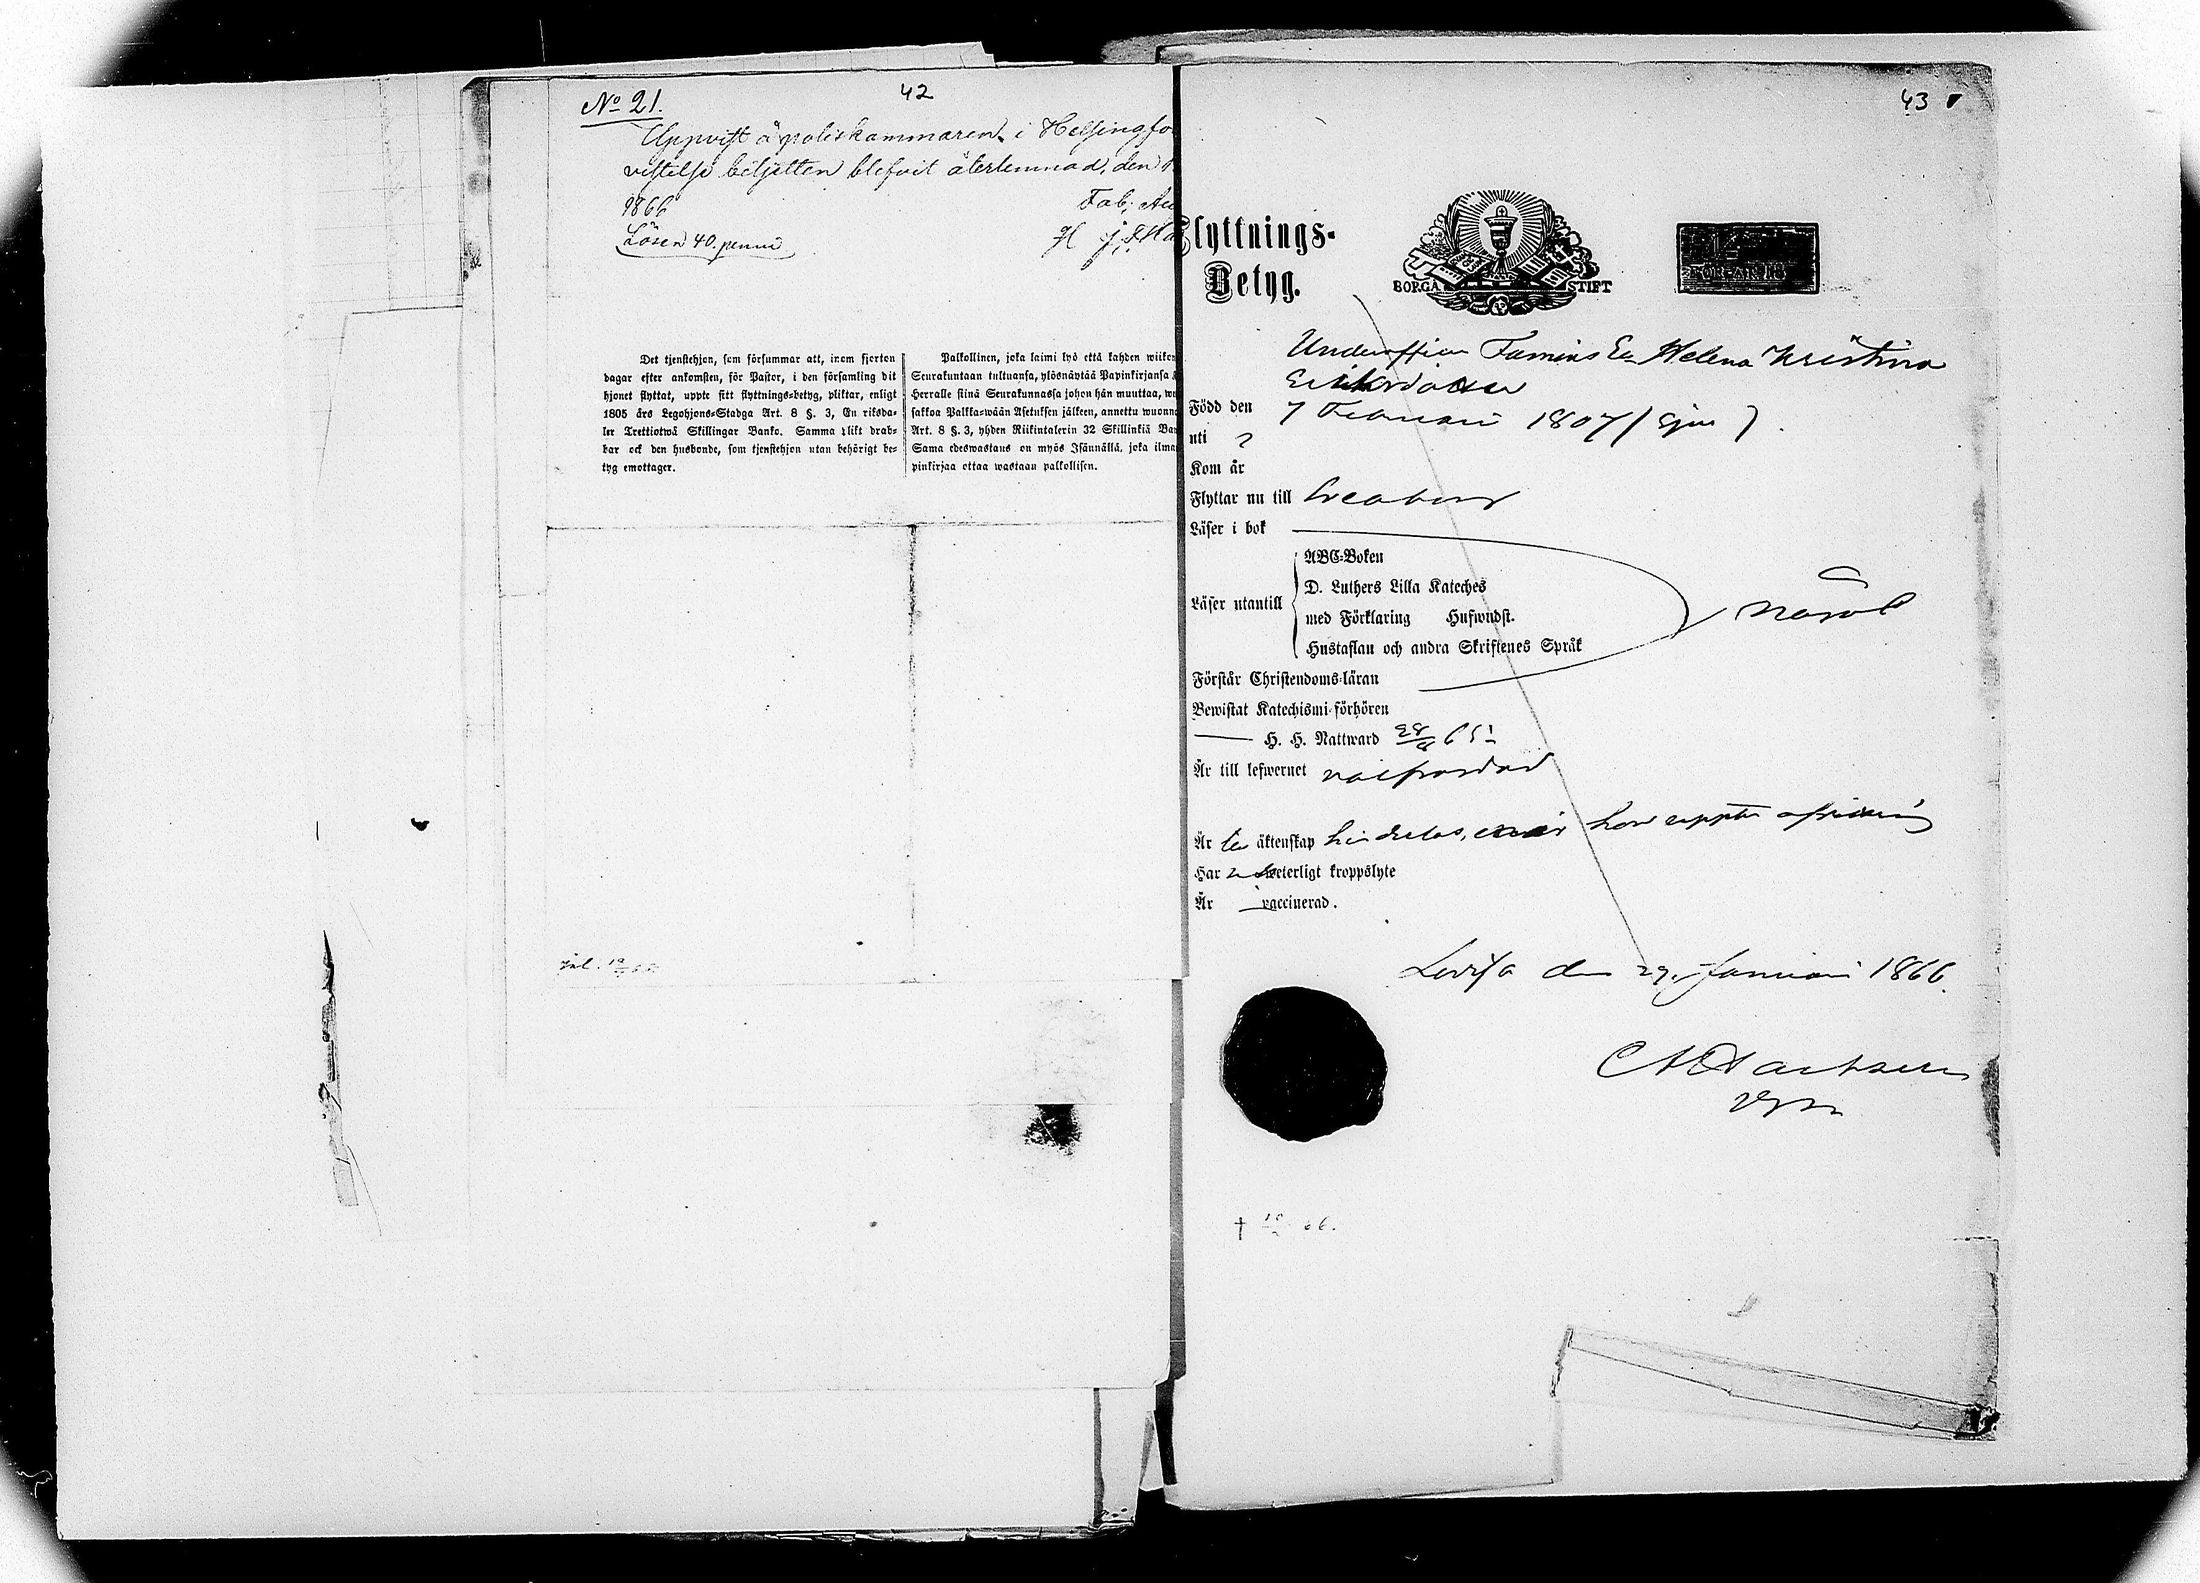 No 21.
42
Uppvist å poliskammaren i Helsingfo
vistelse biljetten blefvit återlemnad, den
1866
Fab:
Lösen 40. penni
Det tjenstehjon, som försummar att, inom fjorton
dagar efter ankomsten, för Pastor, i den församling dit
hjonet flyttat, uppte sitt flyttnings-betyg, pliktar, enligt
1805 års Legohjons-Stadga Art. 8 §. 3, En riksda-
ler Trettiotwå Skillingar Banko. Samma plikt drab-
bar ock den husbonde, som tjenstehjon utan behörigt be-
tyg emottager.
Palkollinen, joka laimi lyö että kahden wiikon
Seurakuntaan tultuansa, ylösnäytää Papinkirjansa
Herralle siinä Seurakunnassa johon hän muuttaa,
sakkoa Palkka-wään Asetuksen jälkeen, annettu wuonna
Art. 8 §. 3, yhden Riikintalerin 32 Skillinkiä Ban
Sama edeswastaus on myös Isännällä, joka ilman
pinkirjaa ottaa wastaan palkollisen.
43
Flyttnings-
Betyg.
BORGÅ STIFT
Underofficer Enka Helena Kristina
Född den 7 Februari 1807
uti ?
Kom år
Flyttar nu till Sveaborg
Läser i bok
ABC-Boken
D. Luthers Lilla Kateches
Läser utantill
med Förklaring Hufwudst.
Hustaflan och andra Skriftenes Språk
Förstår Christendoms-läran
Bewistat Katechismi-förhören
H. H. Nattward
Är till lefwernet välfrejdad
Är till äktenskap hinderlös,
Har wederligt kroppslyte
Är vaccinerad.
Lovisa den 29. Januari 1866.